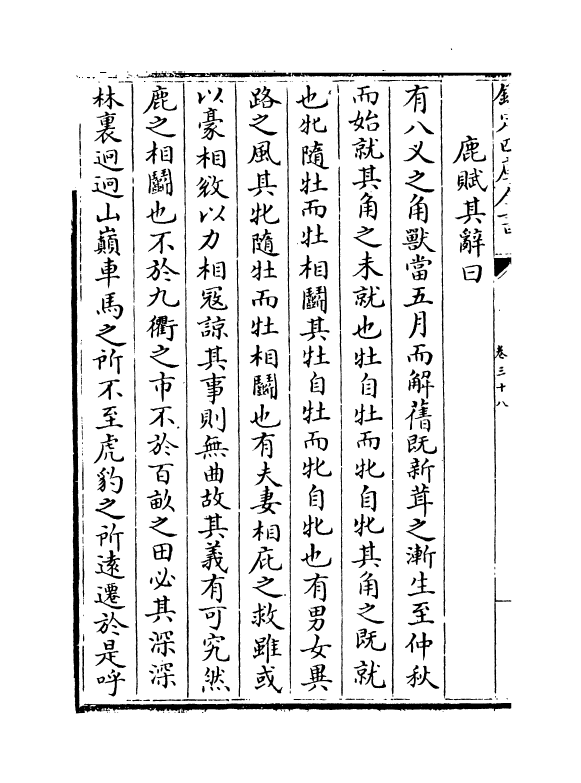 欽定四庫全書
卷三十八
鹿賦其辭曰
有八义之角獸當五月而解舊既新茸之漸生至仲秋
而始就其角之未就也牡自牡而牝自牝其角之既就
也牝隨牡而牡相鬭其牡自牡而牝自牝也有男女異
路之風其牝隨牡而牡相鬭也有夫妻相庇之救雖或
以豪相敓以力相寇諒其事則無曲故其義有可究然
鹿之相鬭也不於九衢之市不於百畝之田必其深深
林裏迥迥山巔車馬之所不至虎豹之所逺遷於是呼